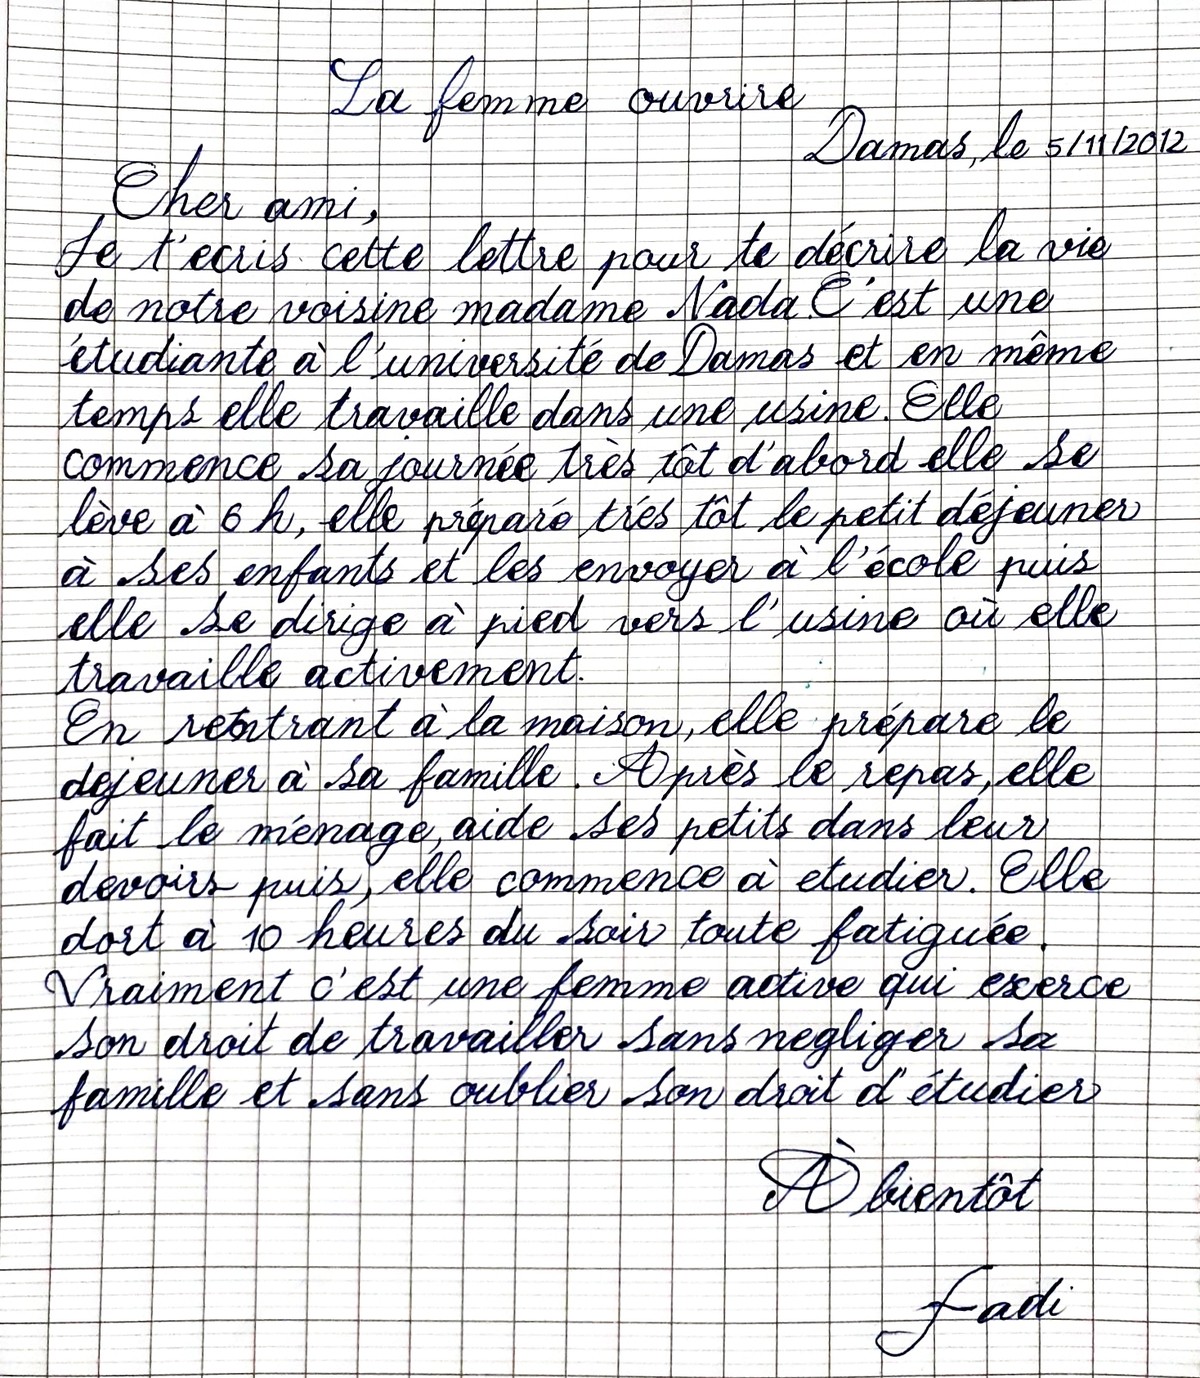 La femme ouvrire
Damas, le 5/11/2012
Cher ami,
Je t'ecris cette lettre pour te décrire la vie
de notre voisine madame Nada C'est une
étudiante à l'université de Damas et en même
temps elle travaille dans une usine. Elle
commence sa journée très tôt d'abord elle se
lève à 6 h, elle préparé trés tôt le petit déjeuner
à ses enfants et les envoyer à l'école puis
elle se dirige à pied vers l'usine où elle
travaille activement.
En rentrant à la maison, elle prépare le
dejeuner à sa famille. Après le repas, elle
fait le ménage, aide ses petits dans leur
devoirs puis, elle commence à etudier. Elle
dort à 10 heures du soir toute fatiguée.
Vraiment c'est une femme active qui exerce
son droit de travailler sans negliger sa
famille et sans oublier son droit d'étudier
À bientôt
Fadi